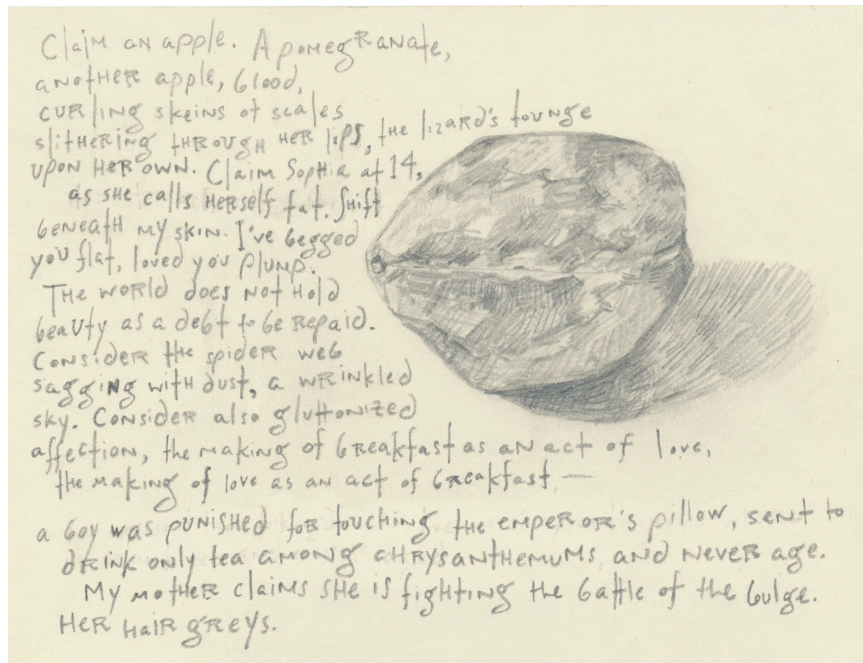 Claim an apple. A pomegranate,
another apple, blood,
curling skeins of scales
slithering through her lips, the lizard's tounge
upon her own. Claim Sophia at 14,
as she calls herself fat. Shift
beneath my skin. I've begged
you flat, loved you plump.
The world does not hold
beauty as a debt to be repaid.
Consider the spider web
sagging with dust, a wrinkled
sky. Consider also gluttonized
affection, the making of breakfast as an act of love,
the making of love as an act of breakfast —
a boy was punished for touching the emperor's pillow, sent to
drink only tea among chrysanthemums, and never age.
My mother claims she is fighting the battle of the bulge.
Her hair greys.